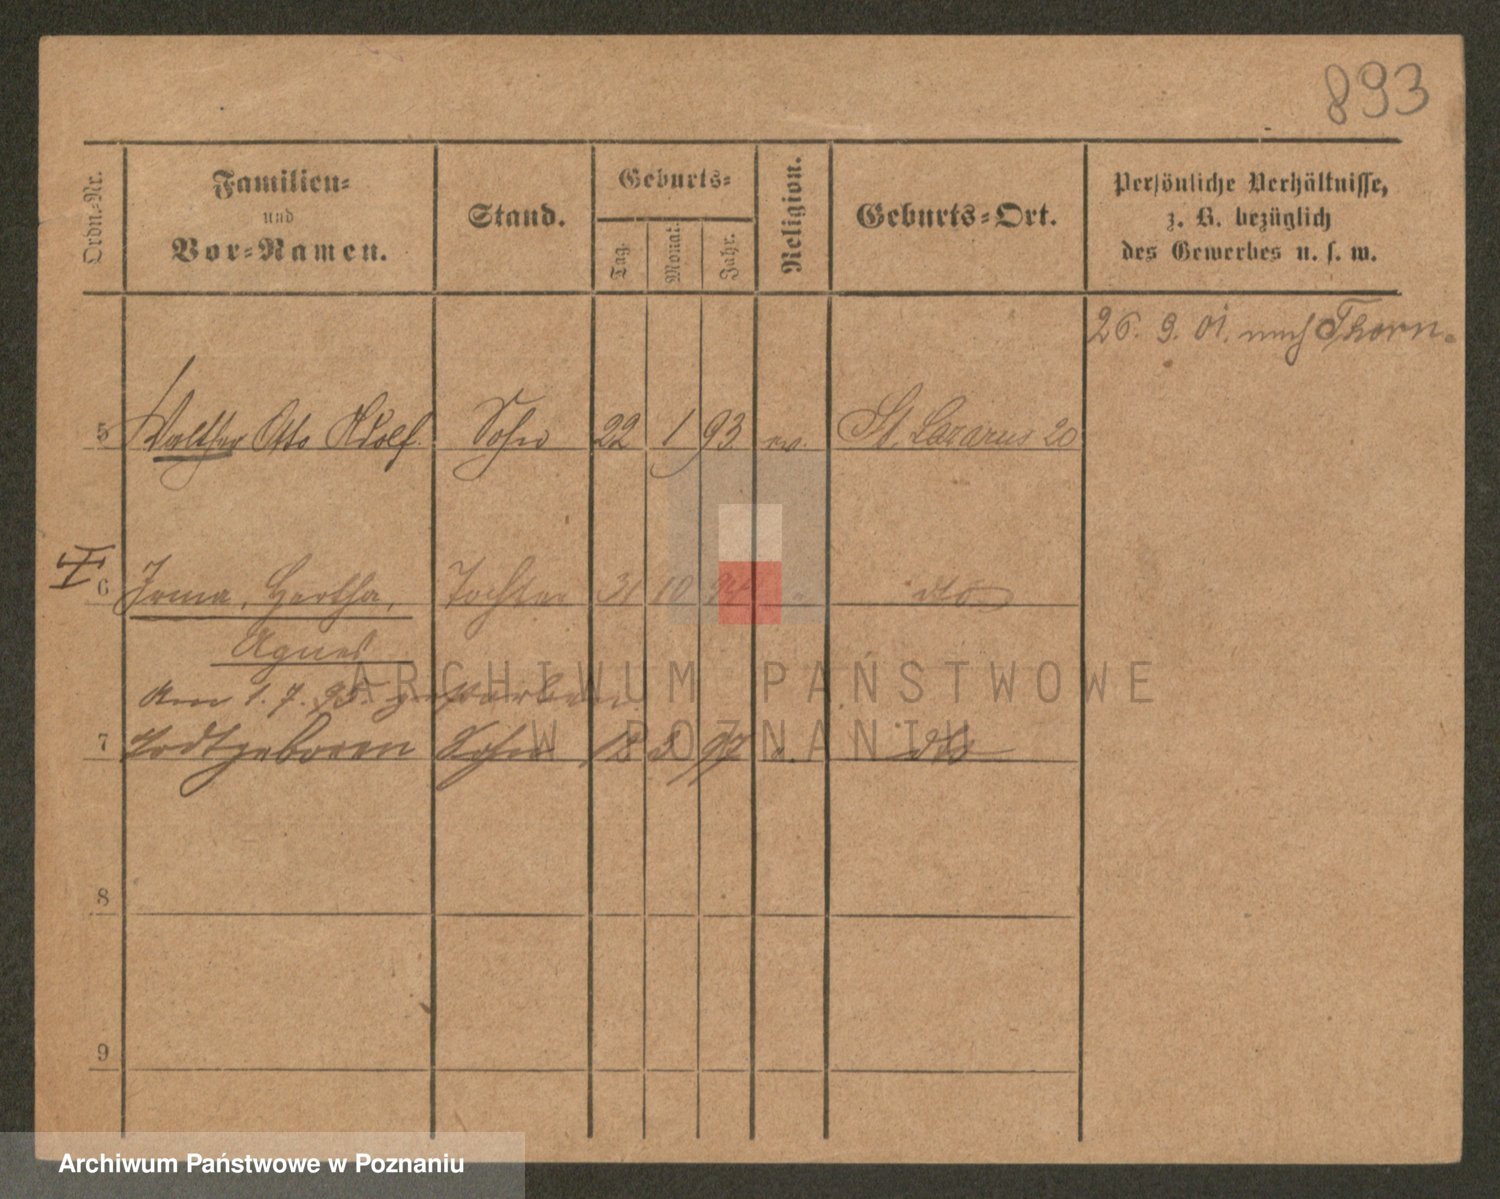 893
Ordn.-Nr.
Familien-
und
Vor-Namen.
Stand.
Geburts-
Tag.
Monat.
Jahr.
Religion.
Geburts-Ort.
Persönliche Verhältnisse,
z. B. bezüglich
des Gewerbes u. s. w.
26. 9. 01. nach Thorn.
5 Walther Otto Adolf. Sohn 22 1 93 ev. St. Lazarus 20
6 Irma, Hertha, Tochter 31 10 94 dto
Agnes
am 1. 7. 95. gestorben
7 Todtgeboren Sohn 18 8 97 dto
8
9
ARCHIWUM PAŃSTWOWE
W POZNANIU
Archiwum Państwowe w Poznaniu